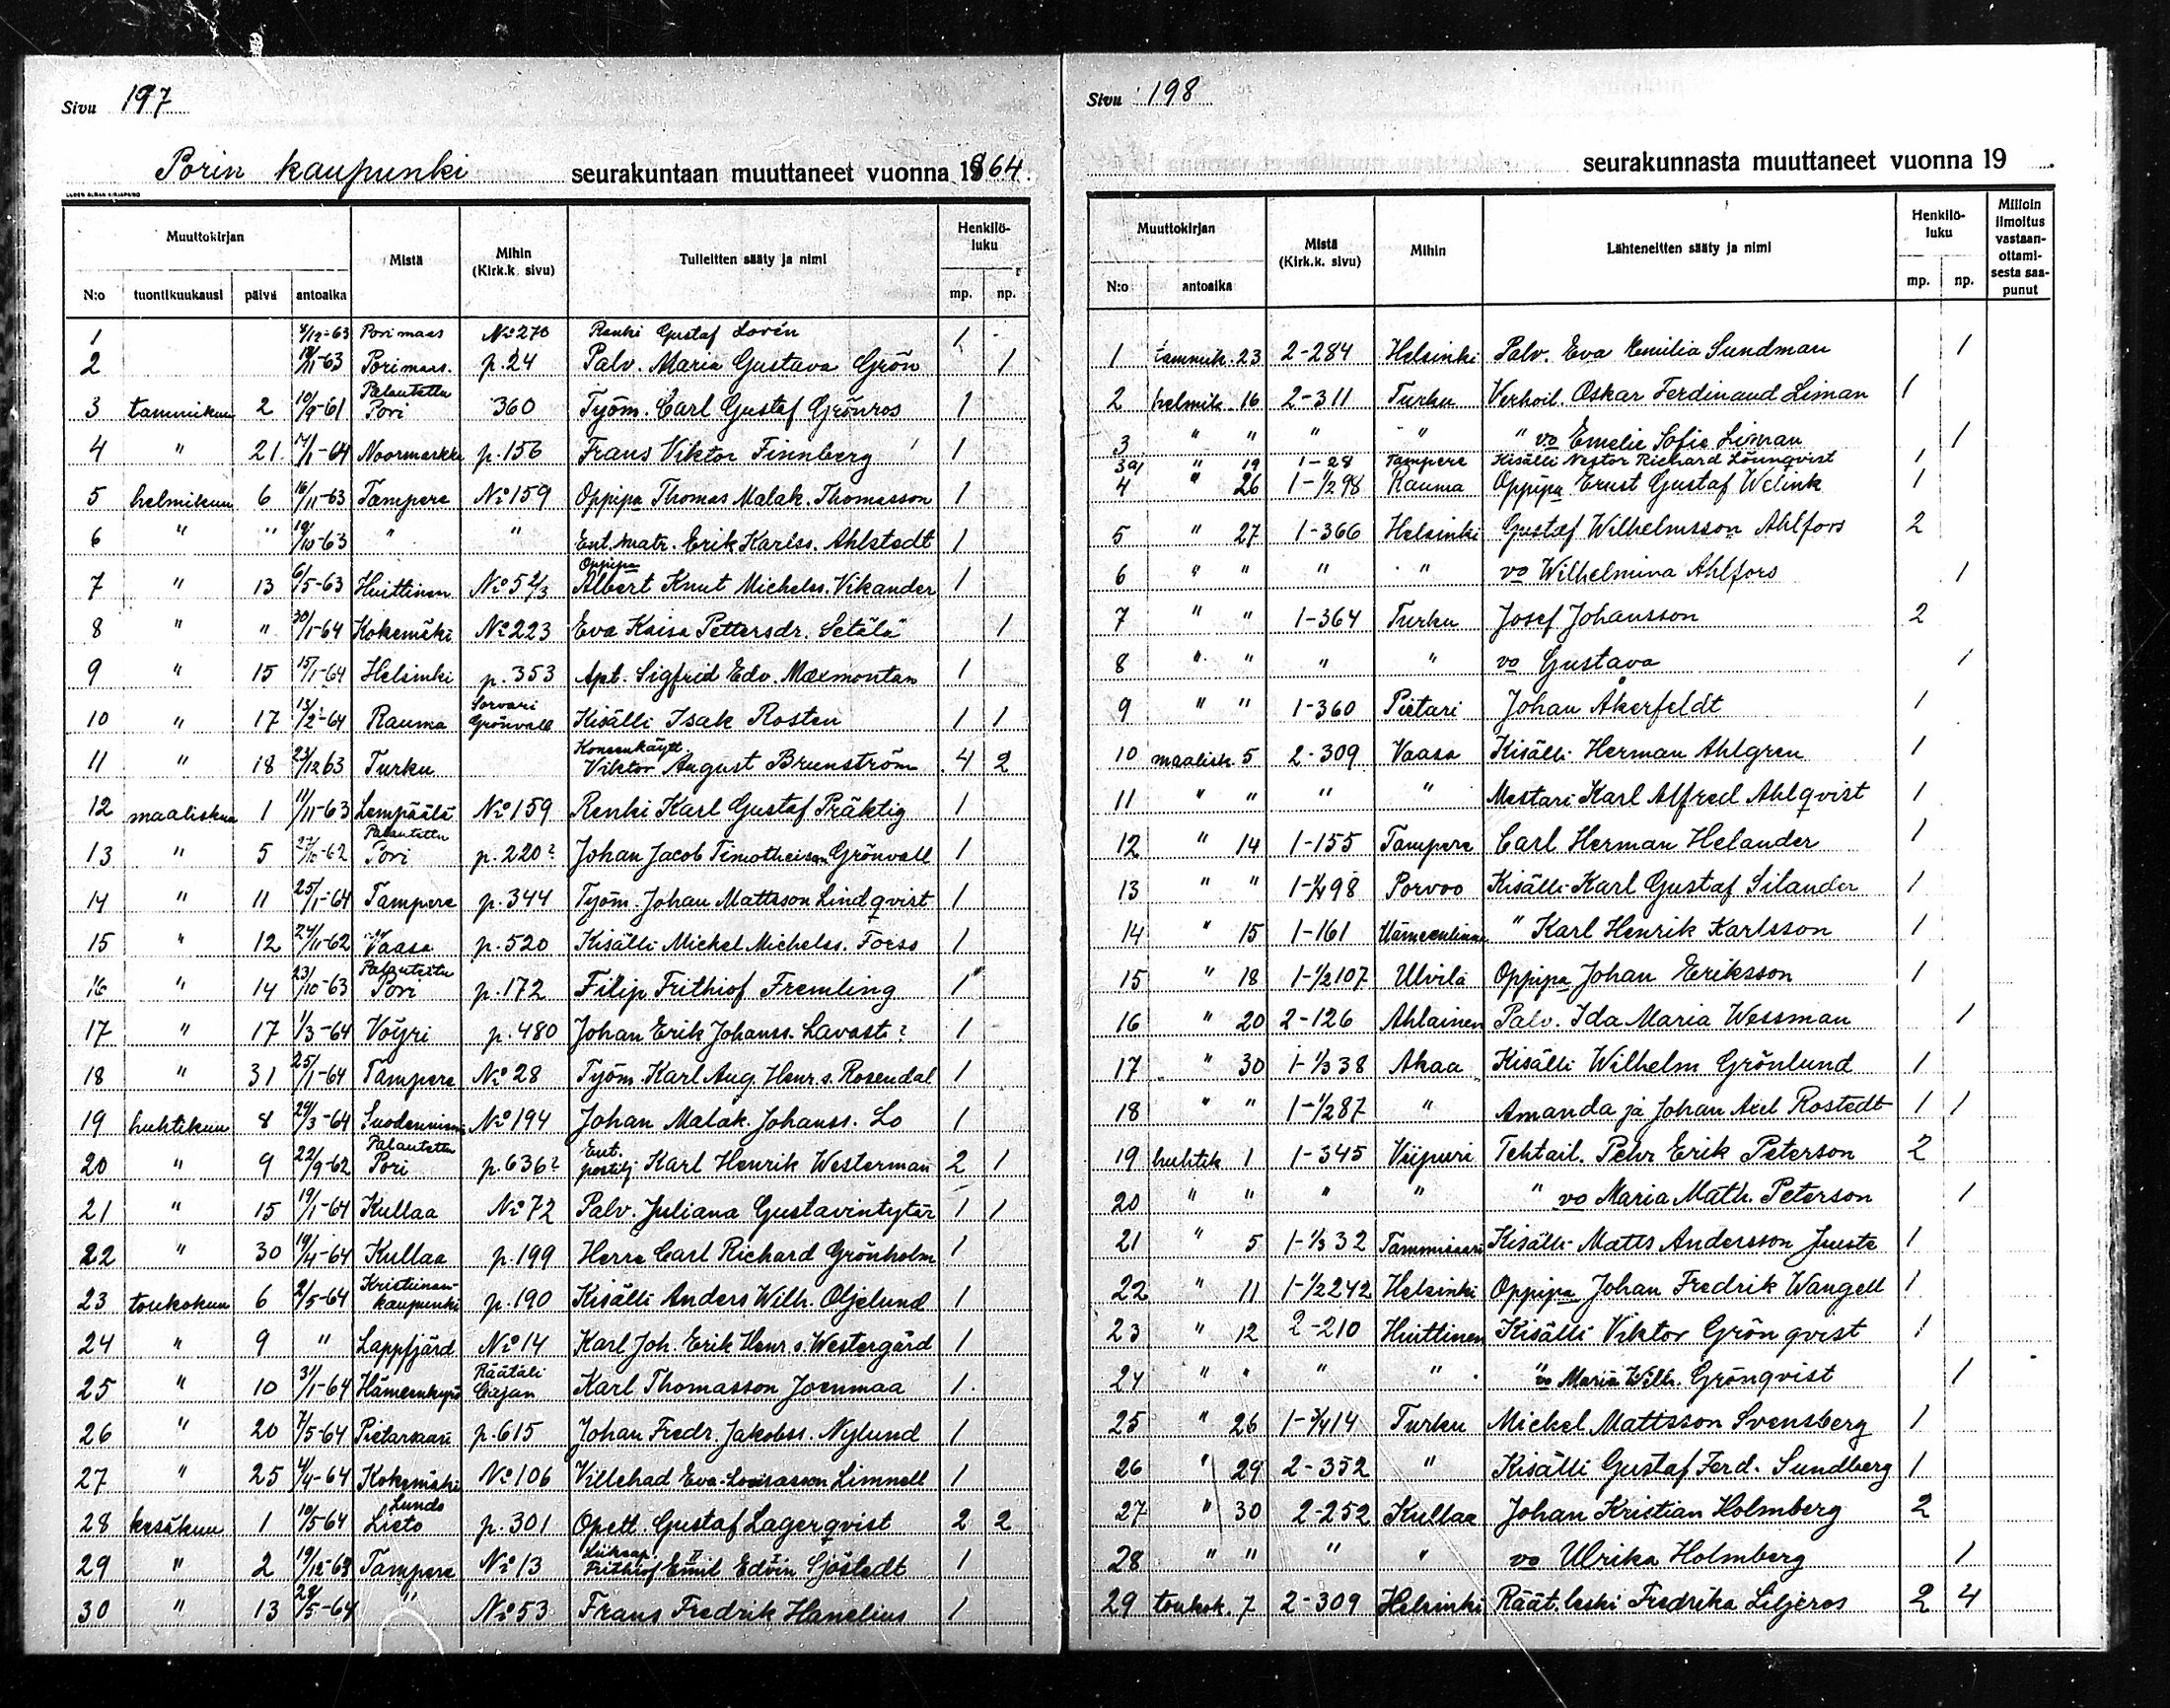 Sivu 197
Porin kaupunki seurakuntaan muuttaneet vuonna 1864.
Muuttokirjan Mistä Mihin (Kirk.k. sivu) Tulleitten sääty ja nimi Henkilö-luku
N:o tuontikuukausi päivä antoaika mp. np.
1 4/12-63 Pori maas No 270 Renki Gustaf Lovén 1 -
2 18/11-63 Pori maas. p. 24 Palv. Maria Gustava Grön 1
3 tammikuu 2 10/9-61 Palautettu Pori 360 Työm. Carl Gustaf Grönros 1
4 " 21. 14/1-64 Noormarkku p. 156 Frans Viktor Finnberg 1
5 helmikuu 6 16/11-63 Tampere No 159 Oppipa Thomas Malak. Thomasson 1
6 " " 19/10-63 " " Ent. matr. Erik Karlss. Ahlstedt 1
7 " 13 6/5-63 Huittinen No 5 2/3 Oppipa Albert Knut Michelss. Vikander 1
8 " " 30/1-64 Kokemäki No 223 Eva Kaisa Pettersdr. Setälä 1
9 " 15 15/1-64 Helsinki p. 353 Apt. Sigfrid Edv. Maxmontan 1
10 " 17 13/2-64 Rauma Sorvari Grönvall Kisälli Isak Rosten 1 1
11 " 18 23/12 63 Turku Koneenkäytt. Viktor August Brunström 4 2
12 maaliskuu 1 11/11-63 Lempäälä No 159 Renki Karl Gustaf Präktig 1
13 " 5 27/10-62 Palautettu Pori p. 220? Johan Jacob Timotheison Grönvall 1
14 " 11 25/1-64 Tampere p. 344 Työm. Johan Mattsson Lindqvist 1
15 " 12 24/11-62 Vaasa p. 520 Kisälli Mickel Michelss. Forss 1
16 " 14 23/10-63 Palautettu Pori p. 172 Filip Frithiof Fremling 1
17 " 17 1/3-64 Vöyri p. 480 Johan Erik Johanss. Lavast? 1
18 " 31 25/1-64 Tampere No 28 Työm. Karl Aug. Henr. s. Rosendal 1
19 huhtikuu 8 29/3-64 Suodenniemi No 194 Johan Malak. Johanss. Lo 1
20 " 9 22/9-62 Palautettu Pori p. 636? Ent. postilj. Karl Henrik Westerman 2 1
21 " 15 19/1-64 Kullaa No 72 Palv. Juliana Gustavintytär 1 1
22 " 30 19/4-64 Kullaa p. 199 Herra Carl Richard Grönholm 1
23 toukokuu 6 2/5-64 Kristiinan-kaupunki p. 190 Kisälli Anders Wilh. Oljelund 1
24 " 9 " Lappfjärd No 14 Karl Joh. Erik Henr. s. Westergård 1
25 " 10 31/1-64 Hämeenkyrö Räätäli Karl Thomasson Joenmaa 1.
26 " 20 7/5-64 Pietarsaari p. 615 Johan Fredr. Jakobss. Nylund 1
27 " 25 4/4-64 Kokemäki No 106 Villehad Eva-Lovisasson Limnell 1
28 kesäkuu 1 10/5-64 Lundo Lieto p. 301 Opett. Gustaf Lagerqvist 2 2
29 " 2 19/12-63 Tampere No 13 Frithiof Emil II Edvin I Sjöstedt 1
30 " 13 28/5-64 " No 53 Frans Fredrik Hanelius 1
Sivu 198
seurakunnasta muuttaneet vuonna 19
Muuttokirjan Mistä (Kirk.k. sivu) Mihin Lähteneitten sääty ja nimi Henkilö-luku Milloin ilmoitus vastaan-ottami-sesta saa-punut
N:o antoaika mp. np.
1 tammik. 23 2-284 Helsinki Palv. Eva Emilia Sundman 1
2 helmik. 16 2-311 Turku Verhoil. Oskar Ferdinand Liman 1
3 " " " " " vo Emelie Sofie Liman 1
3a " 19 1-28 Tampere Kisälli Nestor Richard Lönnqvist 1
4 " 26 1-1/2 98 Rauma Oppipa Ernst Gustaf Welink 1
5 " 27 1-366 Helsinki Gustaf Wilhelmsson Ahlfors 2
6 " " " " vo Wilhelmina Ahlfors 1
7 " " 1-364 Turku Josef Johansson 2
8 " " " " vo Gustava 1
9 " " 1-360 Pietari Johan Åkerfeldt 1
10 maalisk. 5 2-309 Vaasa Kisälli Herman Ahlgren 1
11 " " " " Mestari Karl Alfred Ahlqvist 1
12 " 14 1-155 Tampere Carl Herman Helander 1
13 " " 1-1/4 98 Porvoo Kisälli Karl Gustaf Silander 1
14 " 15 1-161 Hämeenlinna " Karl Henrik Karlsson 1
15 " 18 1-1/2 107 Ulvila Oppipa Johan Eriksson 1
16 " 20 2-126 Ahlainen Palv. Ida Maria Wessman 1
17 " 30 1-1/3 38 Akaa Kisälli Wilhelm Grönlund 1
18 " " 1-1/2 87 " Amanda ja Johan Axel Rostedt 1 1
19 huhtik 1 1-345 Viipuri Tehtail. Pehr Erik Peterson 2
20 " " " " " vo Maria Math. Peterson 1
21 " 5 1-1/3 32 Tammisaari Kisälli Matts Andersson Juuste 1
22 " 11 1-1/2 242 Helsinki Oppipa Johan Fredrik Wangell 1
23 " 12 2-210 Huittinen Kisälli Viktor Grönqvist 1
24 " " " " " vo Maria Wilh. Grönqvist 1
25 " 26 1-3/4 14 Turku Mickel Mattsson Svensberg 1
26 " 29 2-352 " Kisälli Gustaf Ferd. Sundberg 1
27 " 30 2-252 Kullaa Johan Kristian Holmberg 2
28 " " " " vo Ulrika Holmberg 1
29 toukok. 7 2-309 Helsinki Räät. leski Fredrika Liljeros 2 4